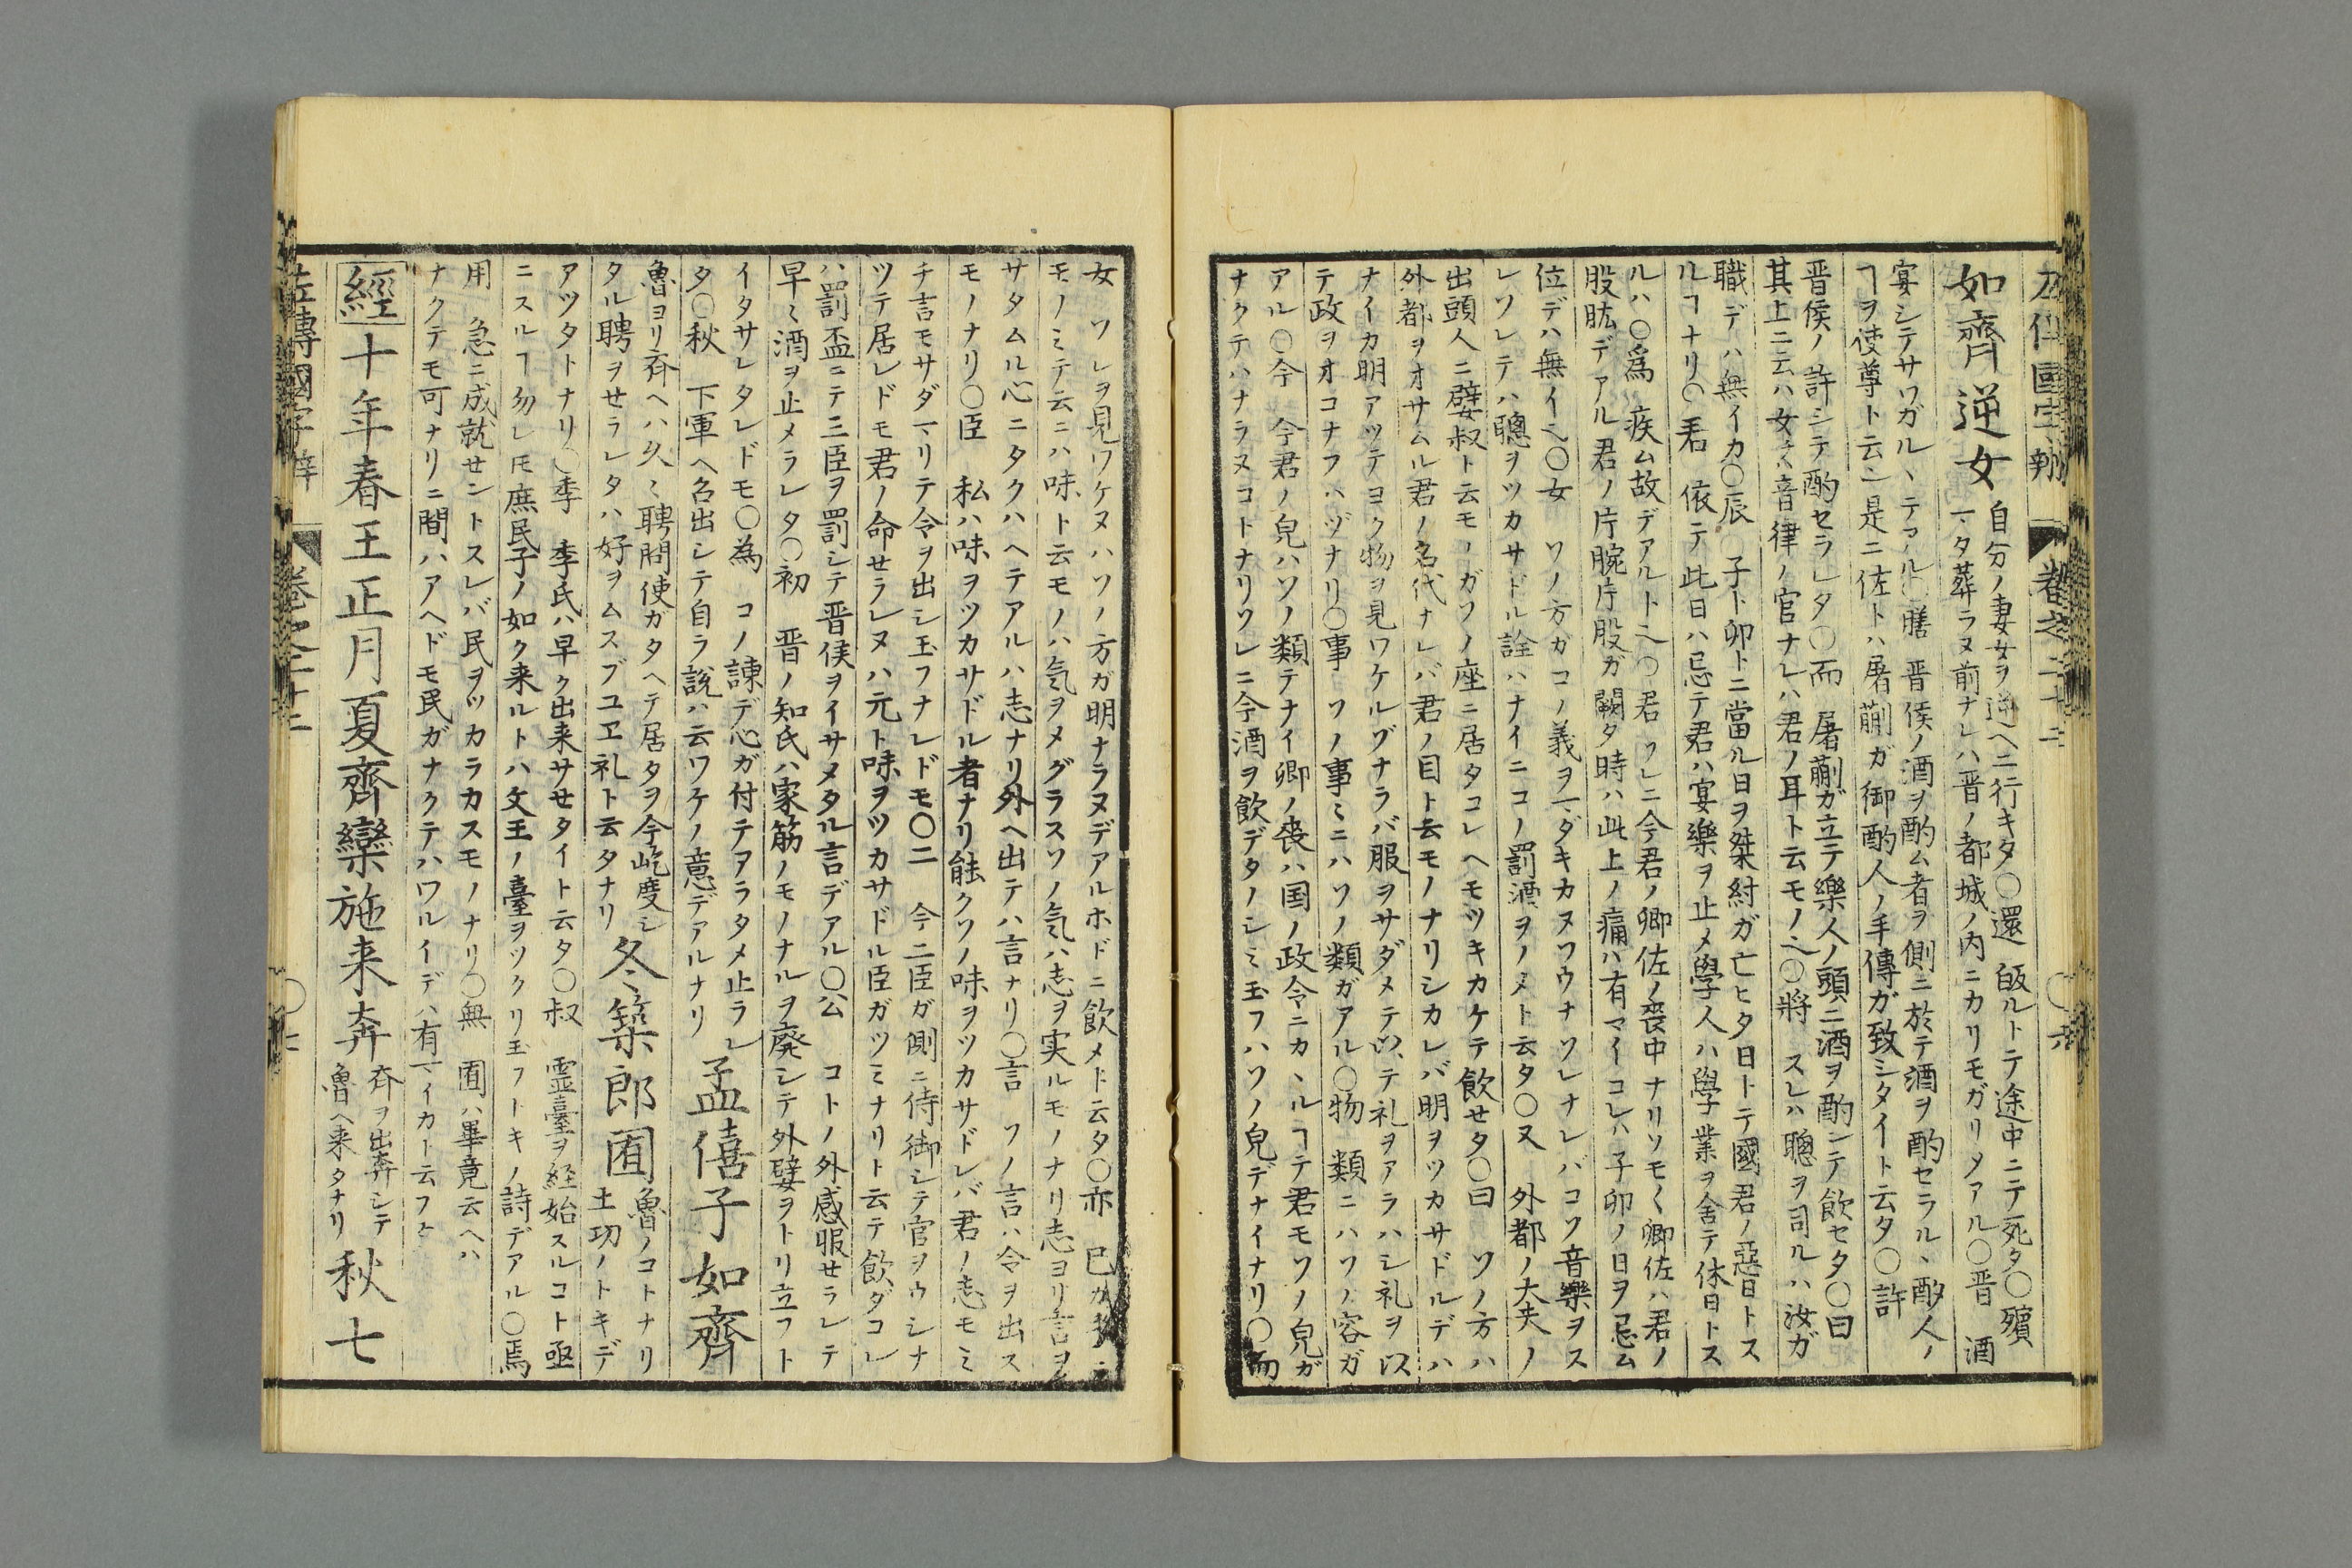 左傳國字辯 卷之二十二 〇六
如齊逆女
自分ノ妻女ヲ逆ヘニ行キタ〇還 皈ルトテ途中ニテ死タ〇殯
マタ葬ラヌ前ナレハ晋ノ都城ノ内ニカリモガリメアル〇晋 酒
宴シテサワガル丶テアル〇膳 晋侯ノ酒ヲ酌ム者ヲ側ニ於テ酒ヲ酌セラル丶酌人ノ
ヿヲ使尊ト云ン是ニ佐トハ屠蒯ガ御酌人ノ手傳ガ致シタイト云タ〇許
晋侯ノ許シテ酌セラレタ〇而 屠蒯ガ立テ樂人ノ頭ニ酒ヲ酌シテ飲セタ〇曰
其上ニ云ハ女ハ音律ノ官ナレハ君ノ耳ト云モノ也〇將 スレハ聰ヲ司ルハ汝ガ
職デハ無イカ〇辰 子ト卯トニ當ル日ヲ桀紂ガ亡ヒタ日トテ國君ノ惡日トス
ルヿナリ〇君 依テ此日ハ忌テ君ハ宴樂ヲ止メ學人ハ學業ヲ舍テ休日トス
ルハ〇爲 疾ム故デアルト也〇君 ワレニ今君ノ卿佐ノ喪中ナリソモ〱卿佐ハ君ノ
股肱デアル君ノ片腕片股ガ闕タ時ハ此上ノ痛ハ有マイコレハ子卯ノ日ヲ忌ム
位デハ無イ也〇女 ソノ方カコノ義ヲマダキカヌワウナソレナレバコワ音樂ヲス
レソレテハ聰ヲツカサドル詮ハナイニコノ罰酒ヲノメト云タ〇又 外都ノ大夫ノ
出頭人ニ嬖叔ト云モノガソノ座ニ居タコレヘモツキカケテ飲セタ〇曰 ソノ方ハ
外都ヲオサムル君ノ名代ナレバ君ノ目ト云モノナリシカレバ明ヲツカサドルデハ
ナイカ明アツテヨク物ヲ見ワケルヅナラバ服ヲサダメテ以テ礼ヲアラハシ礼ヲ以
テ政ヲオコナフハヅナリ〇事 ソノ事ミニハソノ類ガアル〇物 類ニハソノ容ガ
アル〇今 今君ノ皃ハソノ類テナイ卿ノ喪ハ国ノ政令ニカ丶ルヿテ君モソノ皃ガ
ナクテハナラヌコトナリソレニ今酒ヲ飲デタノシミ玉フハソノ皃デナイナリ〇而
女 ソレヲ見ワケヌハソノ方ガ明ナラヌデアルホドニ飲メト云タ〇亦 已カ
モノミテ云ニハ味ト云モノハ気ヲメグラスソノ気ハ志ヲ実ルモノナリ志ヨリ言ヲ
サタムル心ニタクハヘテアルハ志ナリ外ヘ出テハ言ナリ〇言 ソノ言ハ令ヲ出ス
モノナリ〇臣 私ハ味ヲツカサドル者ナリ能クソノ味ヲツカサドレバ君ノ志モミ
チ言モサダマリテ令ヲ出シ玉フナレドモ〇二 今二臣ガ側ニ侍御シテ官ヲウシナ
ツテ居レドモ君ノ命セラレヌハ元ト味ヲツカサドル臣ガツミナリト云テ飲ダコレ
ハ罰盃ニテ三臣ヲ罰シテ晋侯ヲイサメタル言デアル〇公 コトノ外感服セラレテ
早ミ酒ヲ止メラレタ〇初 晋ノ知氏ハ家筋ノモノナルヲ廃シテ外嬖ヲトリ立フト
イタサレタレドモ〇為 コノ諌デ心ガ付テアラタメ止ラレ
タ〇秋 下軍ヘ名出シテ自ラ説ハ云ワケノ意デアルナリ
孟僖子如齊
魯ヨリ斉ヘハ久ミ聘問使ガタヘテ居タヲ今屹度シ
タル聘ヲセラレタハ好ヲムスブユヱ礼ト云タナリ
冬築郎囿
魯ノコトナリ
土功ノトキデ
アツタトナリ〇季 季氏ハ早ク出来サセタイト云タ〇叔 霊臺ヲ経始スルコト亟
ニスルヿ勿レ𪜈庶民子ノ如ク来ルトハ文王ノ臺ヲツクリ玉フトキノ詩デアル〇焉
用 急ニ成就セントスレバ民ヲツカラカスモノナリ〇無 囿ハ畢竟云ヘハ
ナクテモ可ナリニ間ハアヘドモ民ガナクテハワルイデハ有マイカト云フ
經 十年春王正月夏齊欒施来奔
斉ヲ出奔シテ
魯ヘ来タナリ
秋七
左傳國字辯 卷之二十二 〇七